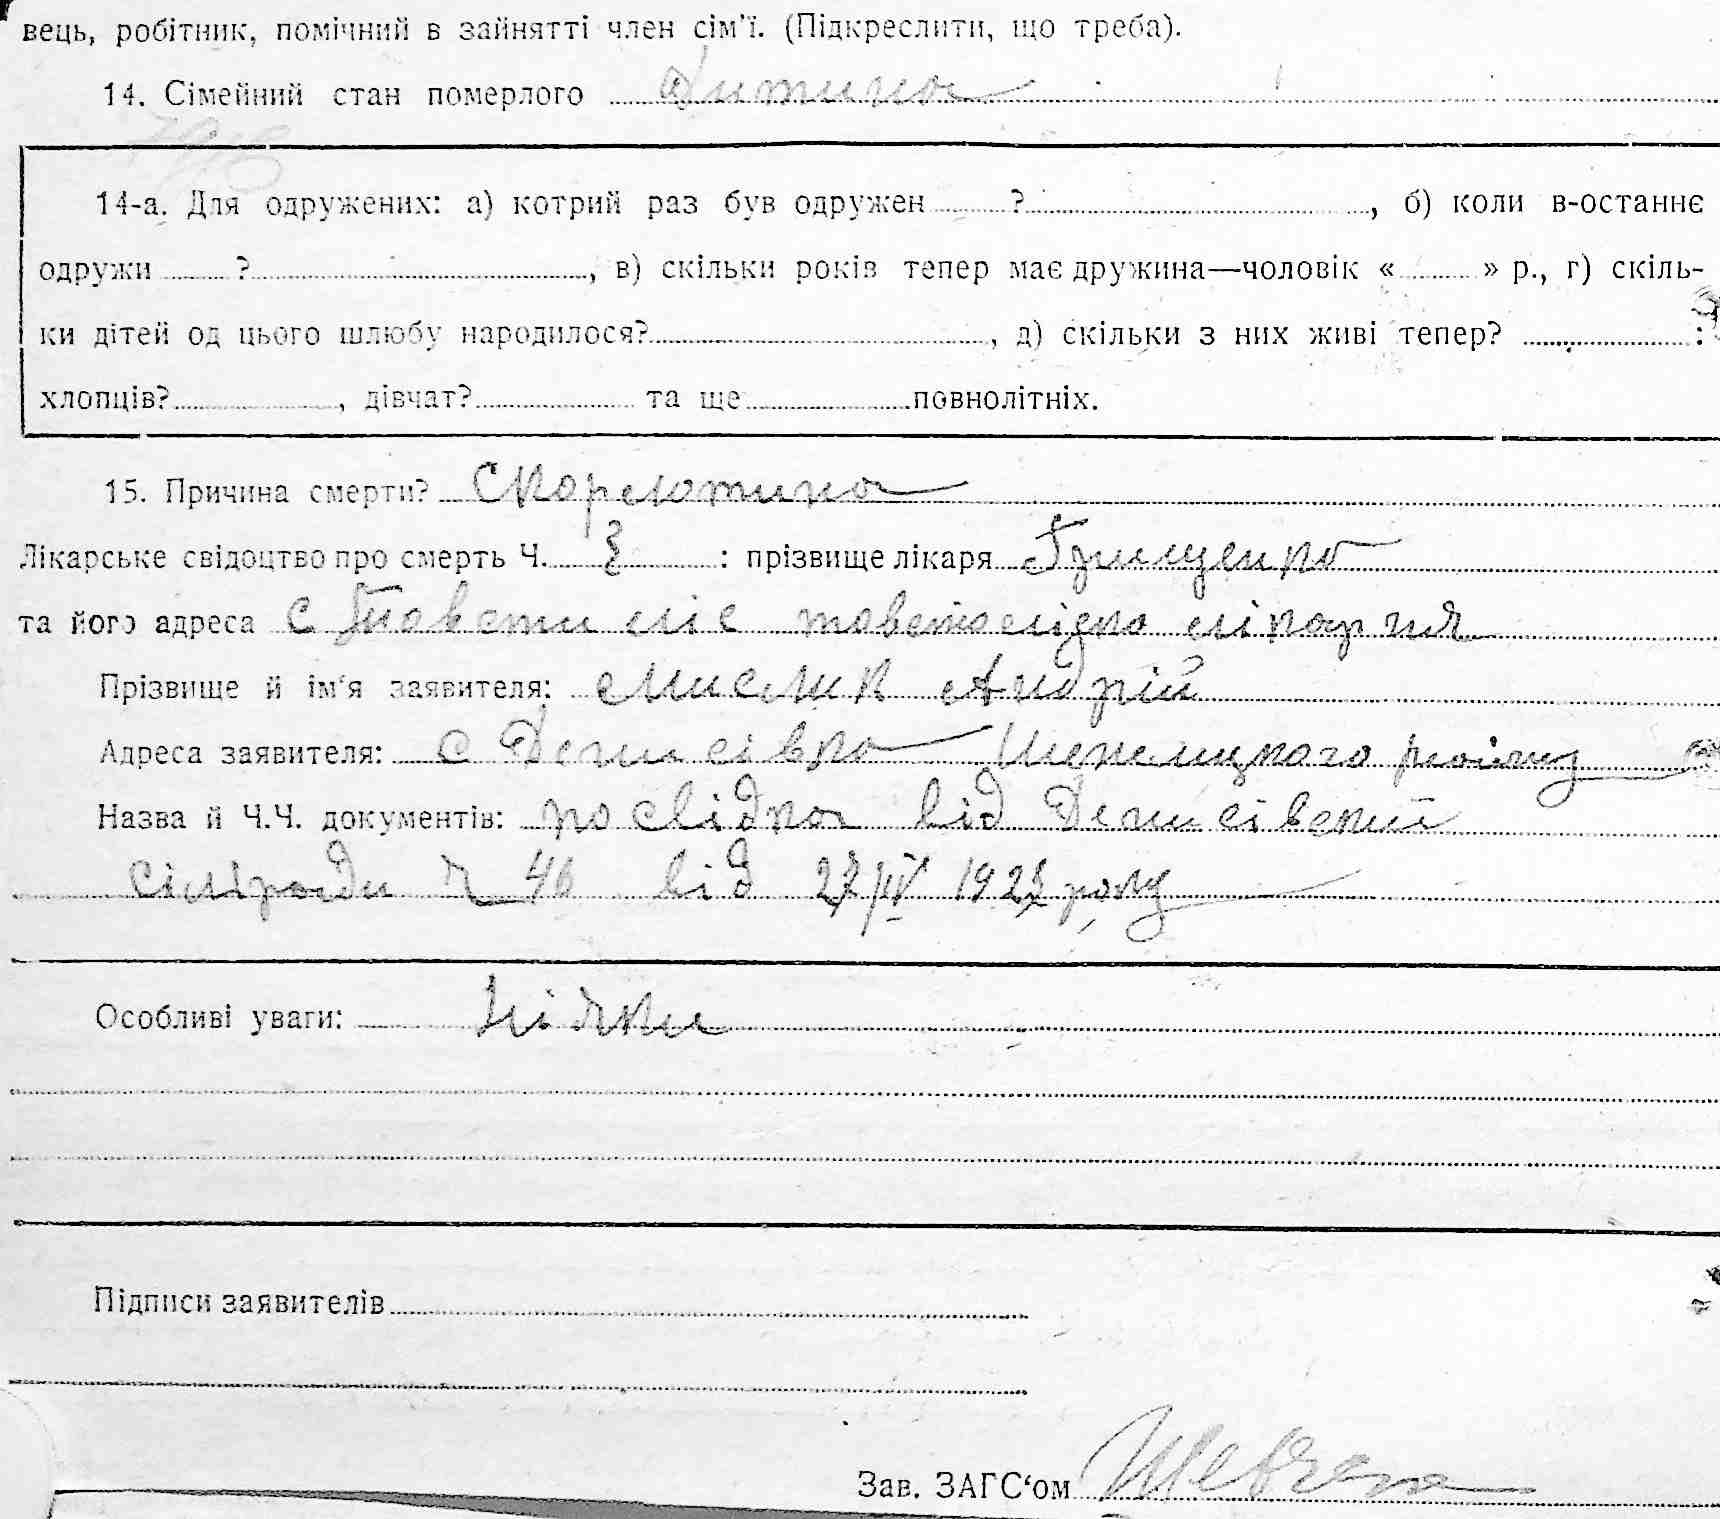 вець, робітник, помічний в зайнятті член сім'ї. (Підкреслити, що треба).
14. Сімейний стан померлого Дитина
14-а. Для одружених: а) котрий раз був одружен ?, б) коли в-останнє
одружи ?, в) скільки років тепер має дружина—чоловік « » р., г) скіль-
ки дітей од цього шлюбу народилося?, д) скільки з них живі тепер? :
хлопців?, дівчат? та ще повнолітніх.
15. Причина смерти? Скорлотина
Лікарське свідоцтво про смерть Ч. 3 : прізвище лікаря Грищенко
та його адреса С Товстиліс товстоліска лікарня
Прізвище й ім'я заявителя: Мислик Андрій
Адреса заявителя: с Денисівка Шепелицкого району
Назва й Ч.Ч. документів: посвідка від Денисівскій
Сілради Ч 46 від 27/IV 192 року
Особливі уваги: Ніяки
Підписи заявителів
Зав. ЗАГС'ом